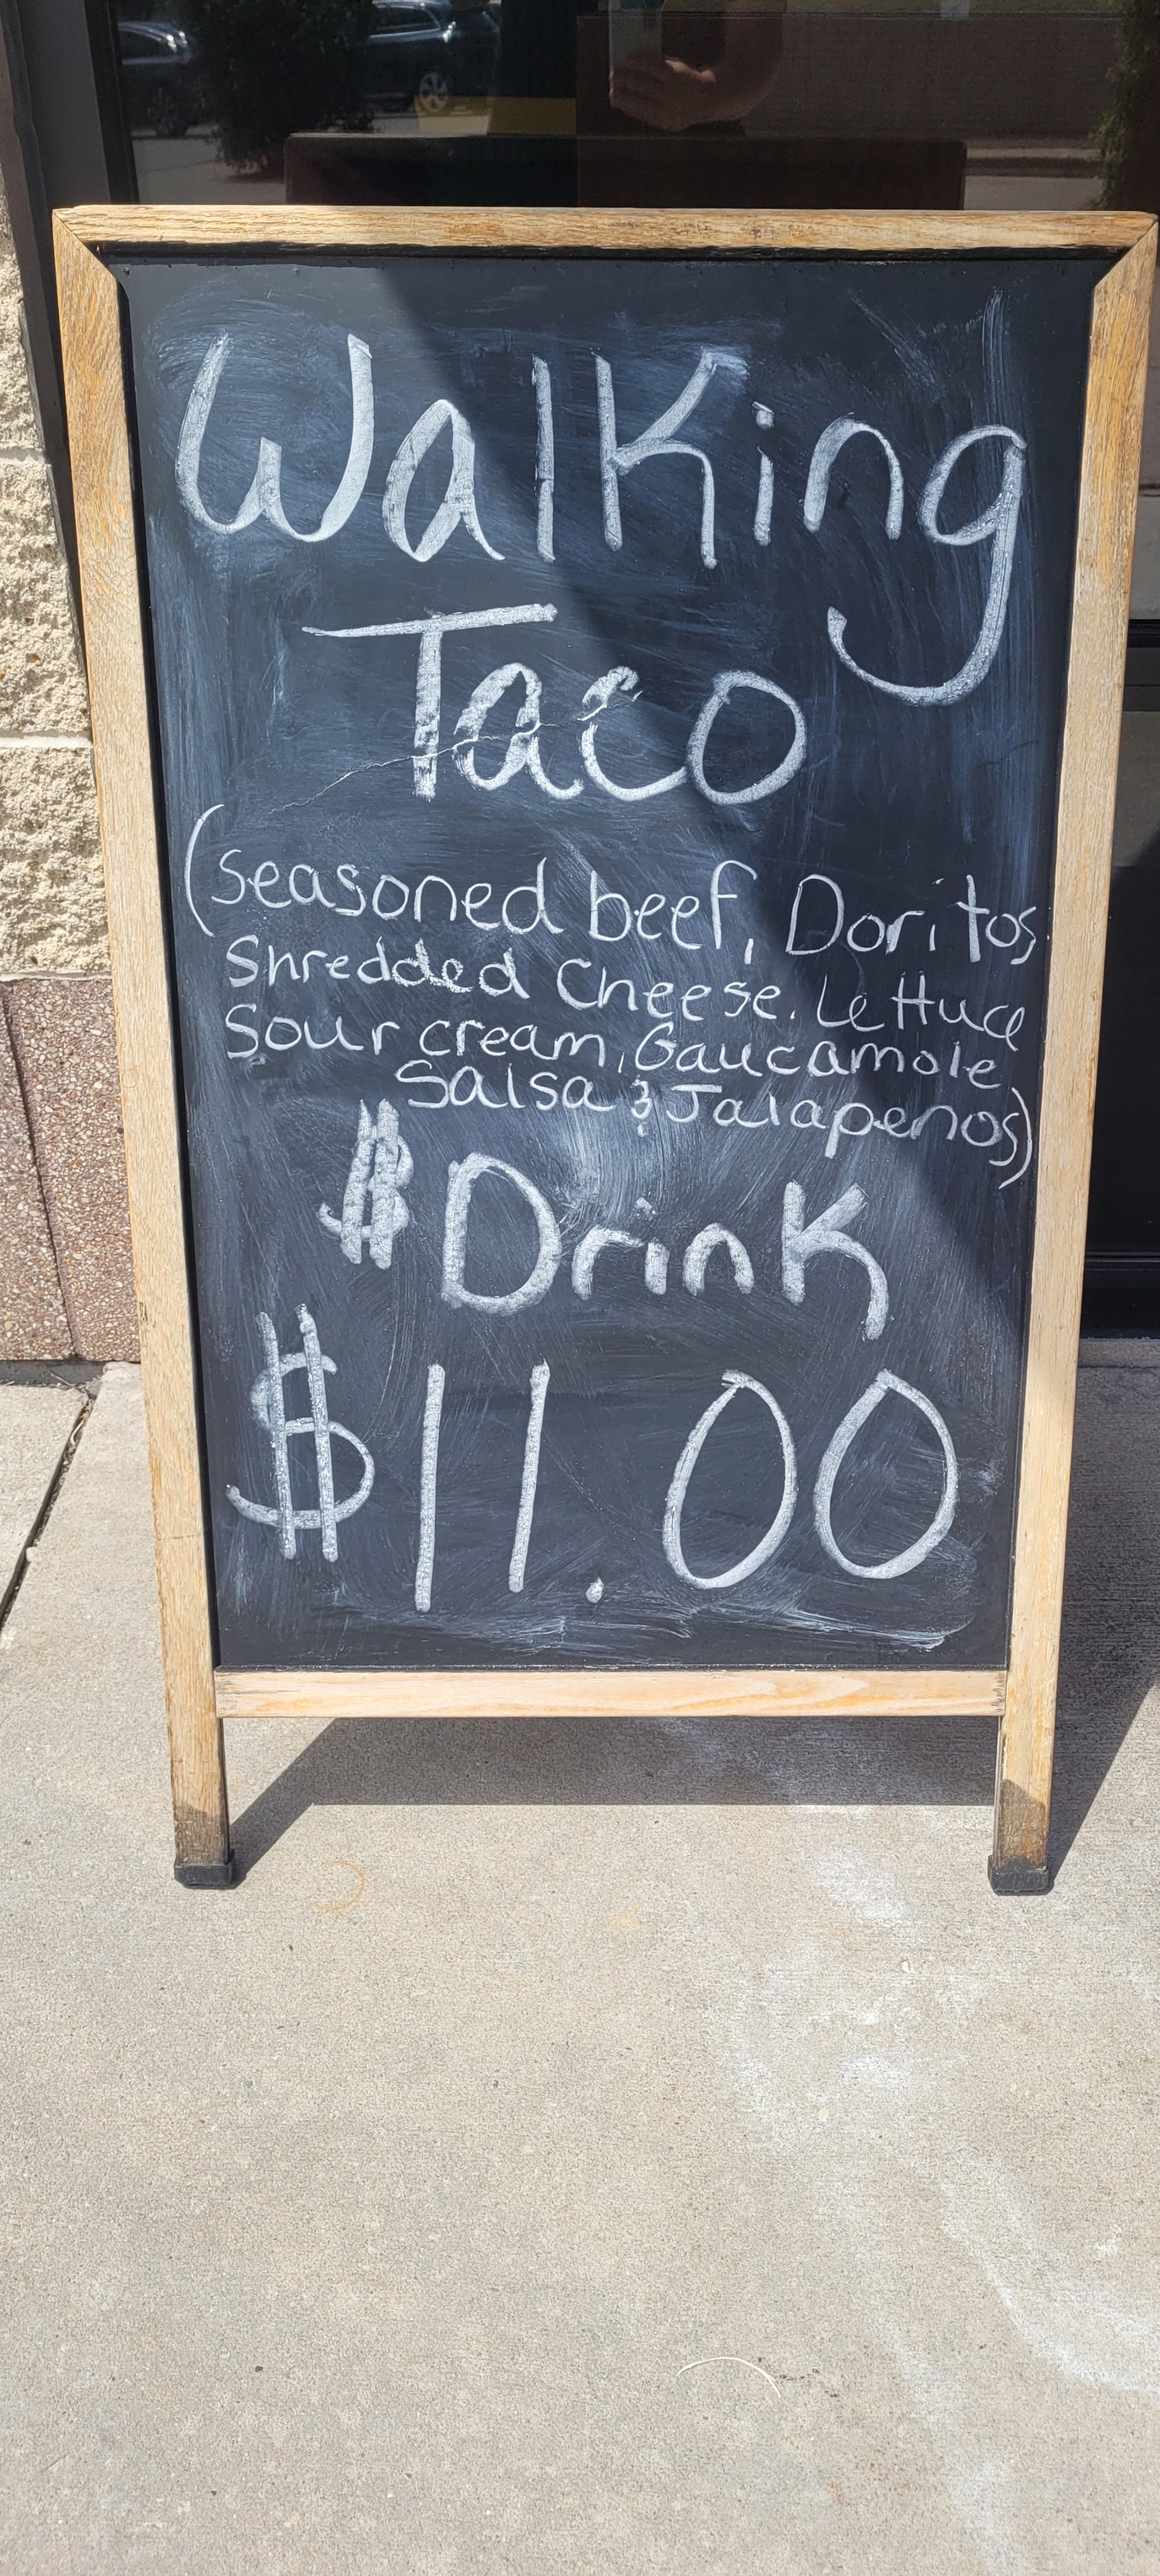 Walking
Taco
(Seasoned beef, Doritos,
Shredded Cheese, Lettuce
Sour cream, Gaucamole,
Salsa & Jalapenos)
$ Drink
$11.00